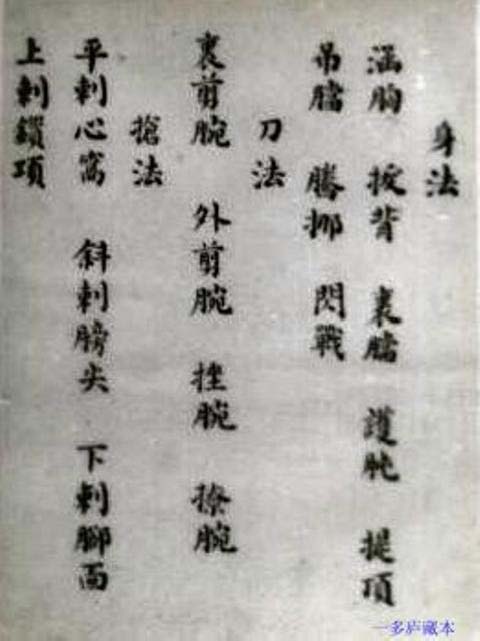 身法
涵胸 拔背 裹臑 護肫 提頂
吊臑 騰挪 閃戰
刀法
裏剪腕 外剪腕 挫腕 撩腕
搶法
平刺心窩 斜刺膀尖 下刺腳面
上刺鎖項
一多庐藏本